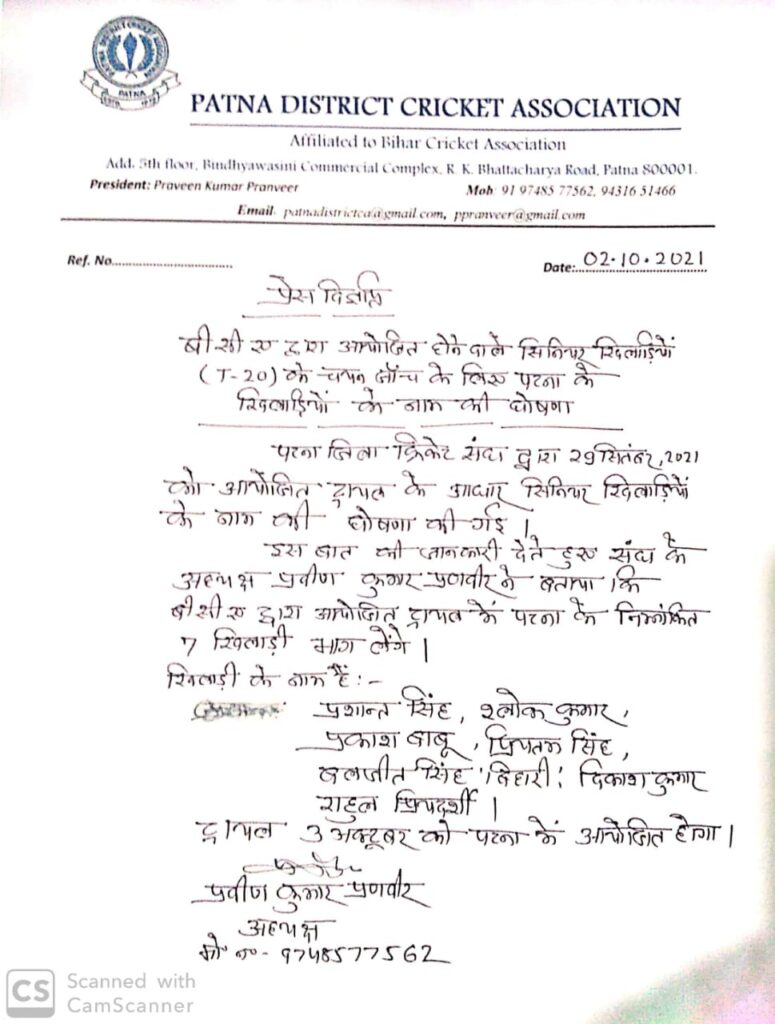 PATNA DISTRICT CRICKET ASSOCIATION
PATNA
PATNA DISTRICT CRICKET ASSOCIATION
Affiliated to Bihar Cricket Association
Add. 5th floor, Bindhyawasini Commercial Complex, R. K. Bhattacharya Road, Patna 800001.
President: Praveen Kumar Pranveer Mob: 91 97485 77562, 94316 51466
Email: patnadistrictca@gmail.com, ppranveer@gmail.com
Ref. No............................... Date: 02.10.2021
प्रेस विज्ञप्ति
बी सी ए द्वारा आयोजित होने वाले सिनियर खिलाड़ियों
(T-20) के चयन जाँच के लिए पटना के
खिलाड़ियों के नाम की घोषणा
पटना जिला क्रिकेट संघ द्वारा 29 सितंबर, 2021
को आयोजित ट्रायल के आधार सिनियर खिलाड़ियों
के नाम की घोषणा की गई।
इस बात की जानकारी देते हुए संघ के
अध्यक्ष प्रवीण कुमार प्रणवीर ने बताया कि
बी सी ए द्वारा आयोजित ट्रायल में पटना के निम्नांकित
7 खिलाड़ी भाग लेंगे।
खिलाड़ी के नाम हैं:-
प्रशान्त सिंह, श्लोक कुमार,
प्रकाश बाबू, प्रियतम सिंह,
बलजीत सिंह 'बिहारी', विकाश कुमार
राहुल प्रियदर्शी।
ट्रायल 3 अक्टूबर को पटना में आयोजित होगा।
प्रवीण कुमार प्रणवीर
अध्यक्ष
मो० न०- 9748577562
CS Scanned with
CamScanner